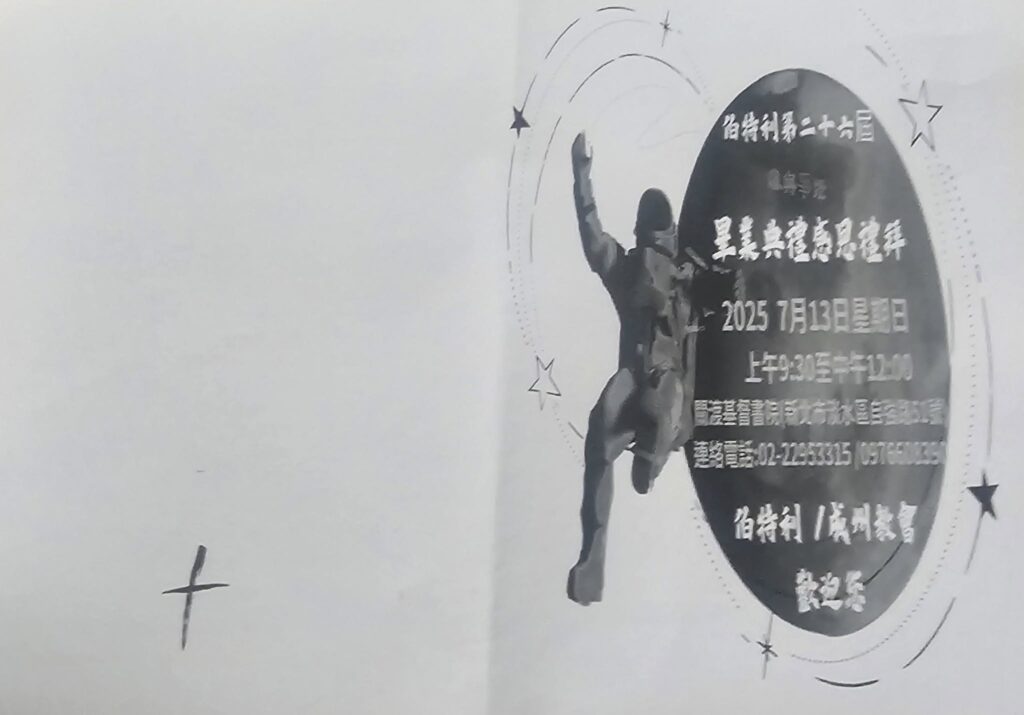 伯特利第二十六屆
畢業典禮感恩禮拜
2025 7月13日星期日
上午9:30至中午12:00
關渡基督書院/新北市淡水區自強路51號
連絡電話:02-22953315 /
伯特利 /成州教會
歡迎您